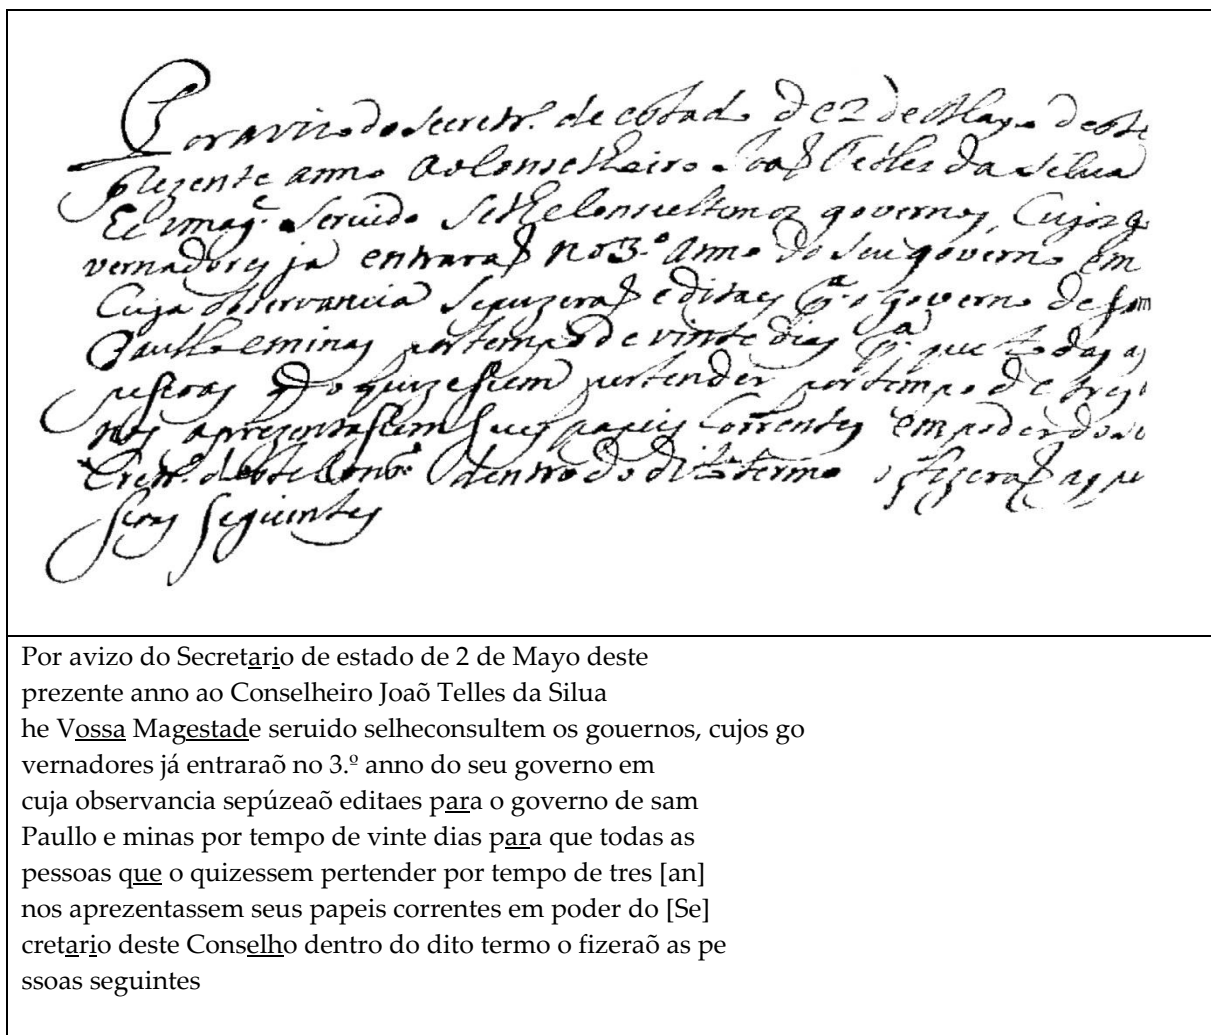 Por avizo do Secretr.º de estado de 2 de Mayo deste
prezente anno ao Conselheiro Joaõ Telles da Silua
he V mag.e seruido selheconsultem os governos, Cujos go
vernadores ja entraraõ no 3.º anno do seu governo em
Cuja observancia sepuzeraõ editaes p.ª o governo de sam
Paullo e minas por tempo de vinte dias p.ª que todas as
pessoas q o quizessem pertender por tempo de tres
nos aprezentassem seus papeis Correntes em poder do
cretr.º deste Cons.º dentro do dito termo o fizeraõ as pe
ssoas seguintes
Por avizo do Secretario de estado de 2 de Mayo deste
prezente anno ao Conselheiro Joaõ Telles da Silua
he Vossa Magestade seruido selheconsultem os gouernos, cujos go
vernadores já entraraõ no 3.º anno do seu governo em
cuja observancia sepúzeaõ editaes para o governo de sam
Paullo e minas por tempo de vinte dias para que todas as
pessoas que o quizessem pertender por tempo de tres [an]
nos aprezentassem seus papeis correntes em poder do [Se]
cretario deste Conselho dentro do dito termo o fizeraõ as pe
ssoas seguintes